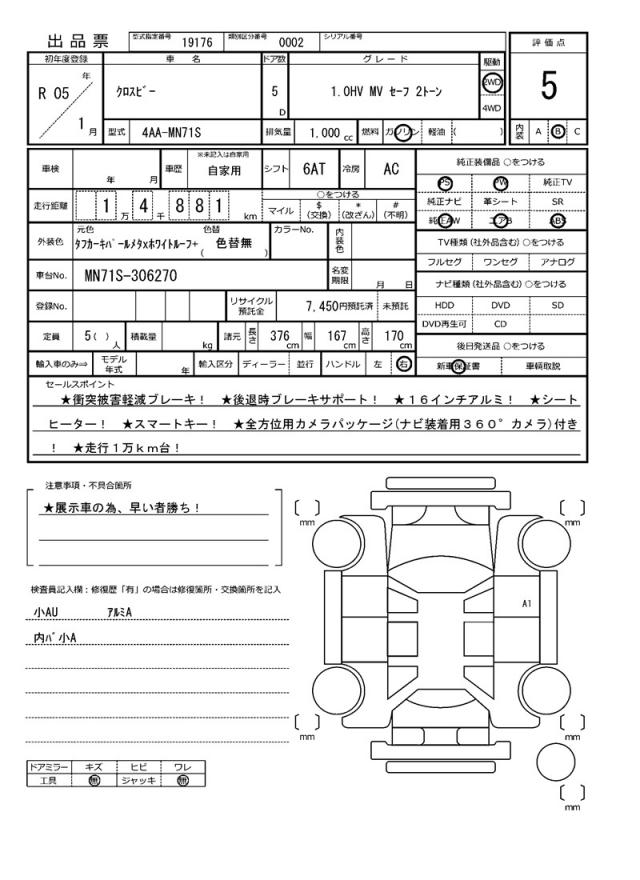 出品票
型式指定番号 19176 類別区分番号 0002 シリアル番号
評価点
5
内装 A B C
初年度登録 車名 ドア数 グレード 駆動
R 05 年 1 月
クロスビー
5 D
1.0HV MV セーフ 2トーン
2WD
4WD
型式 4AA-MN71S 排気量 1.000 cc 燃料 ガソリン 軽油 ( )
車検 年 月 車歴 ※未記入は自家用 自家用 シフト 6AT 冷房 AC
走行距離 1 万 4 千 8 8 1 km
○をつける
マイル $(交換) *(改ざん) #(不明)
外装色 元色 色替 カラーNo. 内装色
タフカーキパールメタxホワイトルーフ+ ( 色替無 )
車台No. MN71S-306270 名変期限 月 日
登録No. リサイクル預託金 7,450円預託済 未預託
定員 5( ) 人 積載量 kg 諸元 長さ 376 cm 幅 167 cm 高さ 170 cm
輸入車のみ⇒ モデル年式 年 輸入区分 ディーラー 並行 ハンドル 左 右
純正装備品 ○をつける
PS PW 純正TV
純正ナビ 革シート SR
純正AW エアB ABS
TV種類 (社外品含む) ○をつける
フルセグ ワンセグ アナログ
ナビ種類 (社外品含む) ○をつける
HDD DVD SD
DVD再生可 CD
後日発送品 ○をつける
新車保証書 車輌取説
セールスポイント
★衝突被害軽減ブレーキ! ★後退時ブレーキサポート! ★16インチアルミ! ★シート
ヒーター! ★スマートキー! ★全方位用カメラパッケージ(ナビ装着用360°カメラ)付き
! ★走行1万km台!
注意事項・不具合箇所
★展示車の為、早い者勝ち!
検査員記入欄:修復歴「有」の場合は修復箇所・交換箇所を記入
小AU アルミA
内バ小A
ドアミラー キズ ヒビ ワレ
工具 無 ジャッキ 無
[ ] mm
[ ] mm
A1
[ ] mm
[ ] mm
[ ] mm